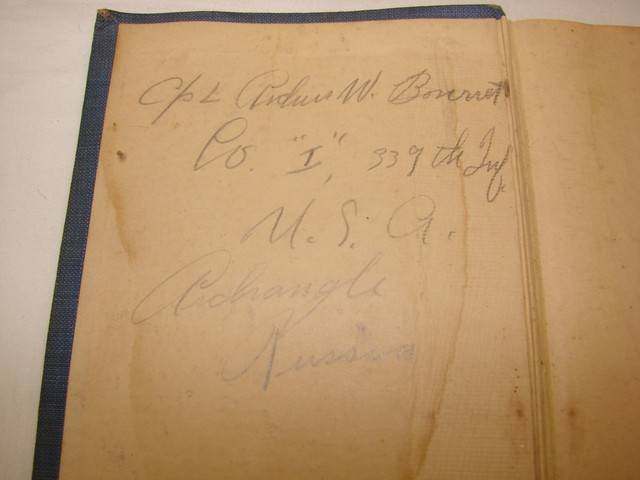 Cpl Arduis W. Bonerret
Co. "I", 339th Inf
U. S. A.
Archangle
Russia